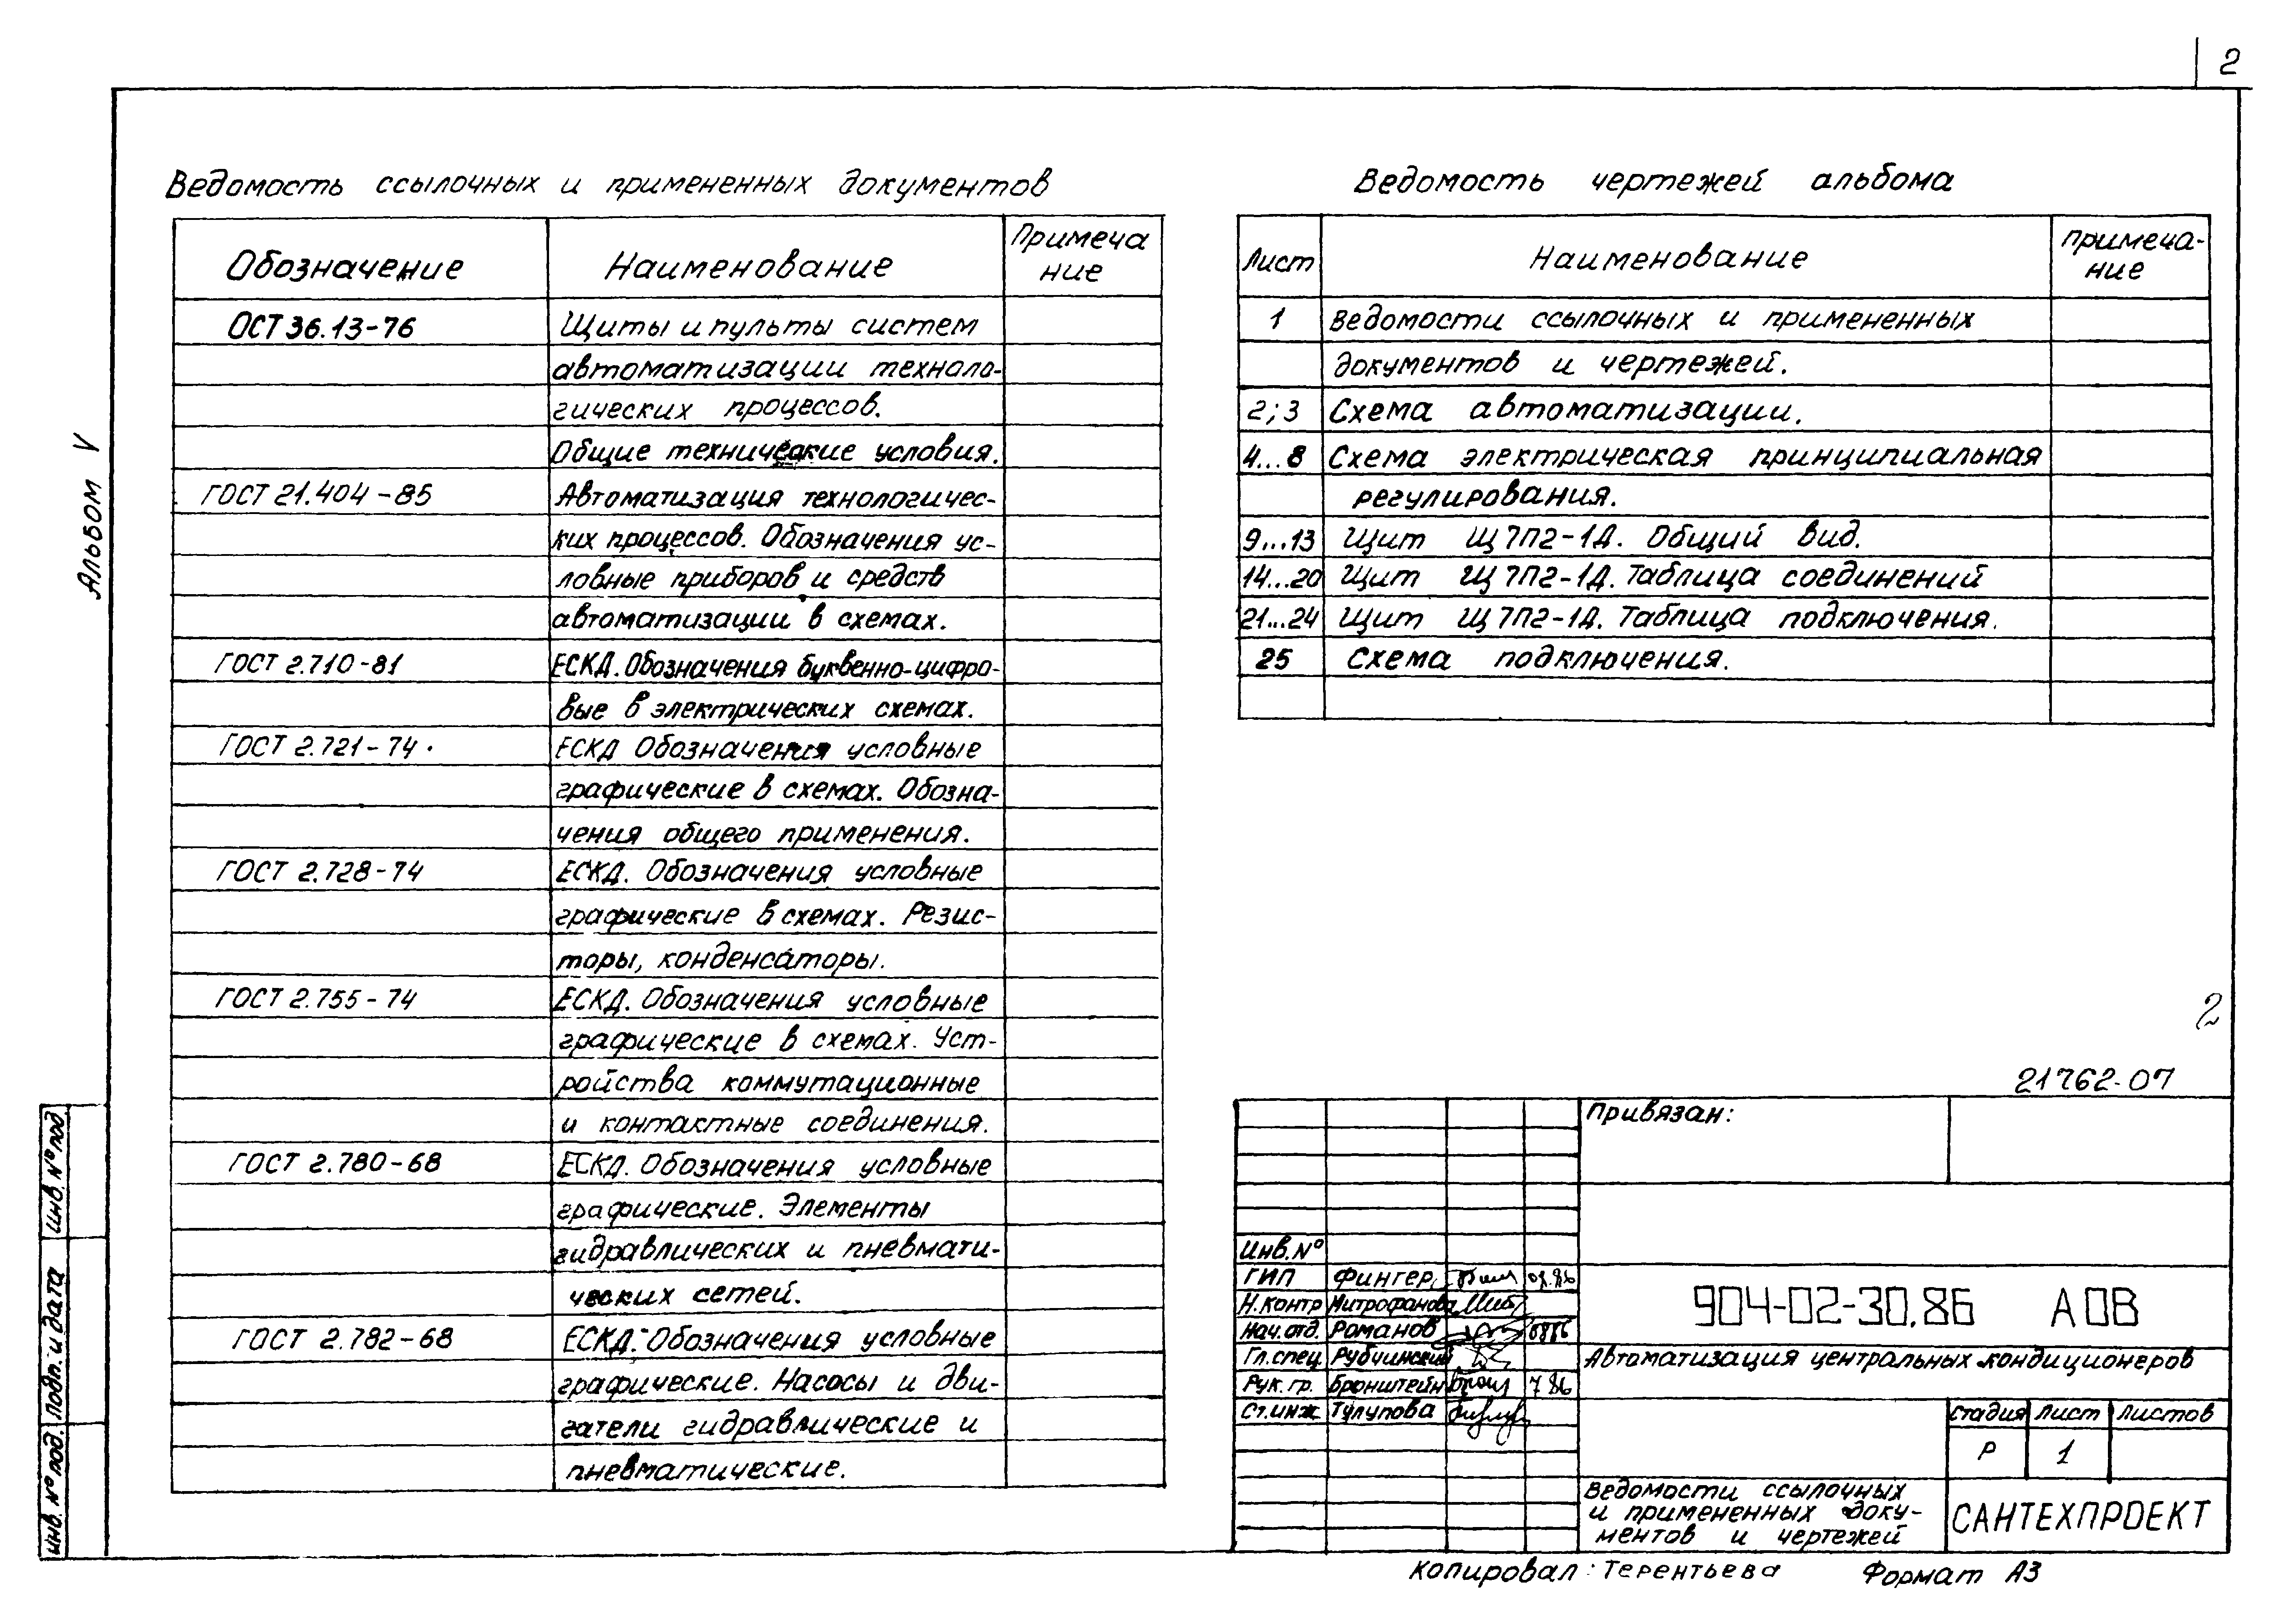 2
Альбом V
Ведомость ссылочных и примененных документов
Обозначение Наименование Примеча
ние
ОСТ 36.13-76 Щиты и пульты систем
автоматизации техноло-
гических процессов.
Общие технические условия.
ГОСТ 21.404-85 Автоматизация технологичес-
ких процессов. Обозначения ус-
ловные приборов и средств
автоматизации в схемах.
ГОСТ 2.710-81 ЕСКД. Обозначения буквенно-цифро-
вые в электрических схемах.
ГОСТ 2.721-74. ЕСКД Обозначения условные
графические в схемах. Обозна-
чения общего применения.
ГОСТ 2.728-74 ЕСКД. Обозначения условные
графические в схемах. Резис-
торы, конденсаторы.
ГОСТ 2.755-74 ЕСКД. Обозначения условные
графические в схемах. Уст-
ройства коммутационные
и контактные соединения.
ГОСТ 2.780-68 ЕСКД. Обозначения условные
графические. Элементы
гидравлических и пневмати-
ческих сетей.
ГОСТ 2.782-68 ЕСКД. Обозначения условные
графические. Насосы и дви-
гатели гидравлические и
пневматические.
Ведомость чертежей альбома
Лист Наименование Примеча-
ние
1 Ведомости ссылочных и примененных
документов и чертежей.
2; 3 Схема автоматизации.
4...8 Схема электрическая принципиальная
регулирования.
9...13 Щит Щ7П2-1Д. Общий вид.
14...20 Щит Щ7П2-1Д. Таблица соединений
21...24 Щит Щ7П2-1Д. Таблица подключения.
25 Схема подключения.
2
21762-07
Привязан:
Инв.N°
ГИП Фингер
Н.контр Митрофанова
Нач.отд. Романов
Гл.спец Рубчинский
Рук.гр. Бронштейн 7 86
Ст.инж Тулупова
904-02-30.86 АОВ
Автоматизация центральных кондиционеров
Стадия Лист Листов
Р 1
Ведомости ссылочных
и примененных доку-
ментов и чертежей
САНТЕХПРОЕКТ
Копировал: Терентьева Формат А3
инв. N° под. подп. и дата инв. N° под